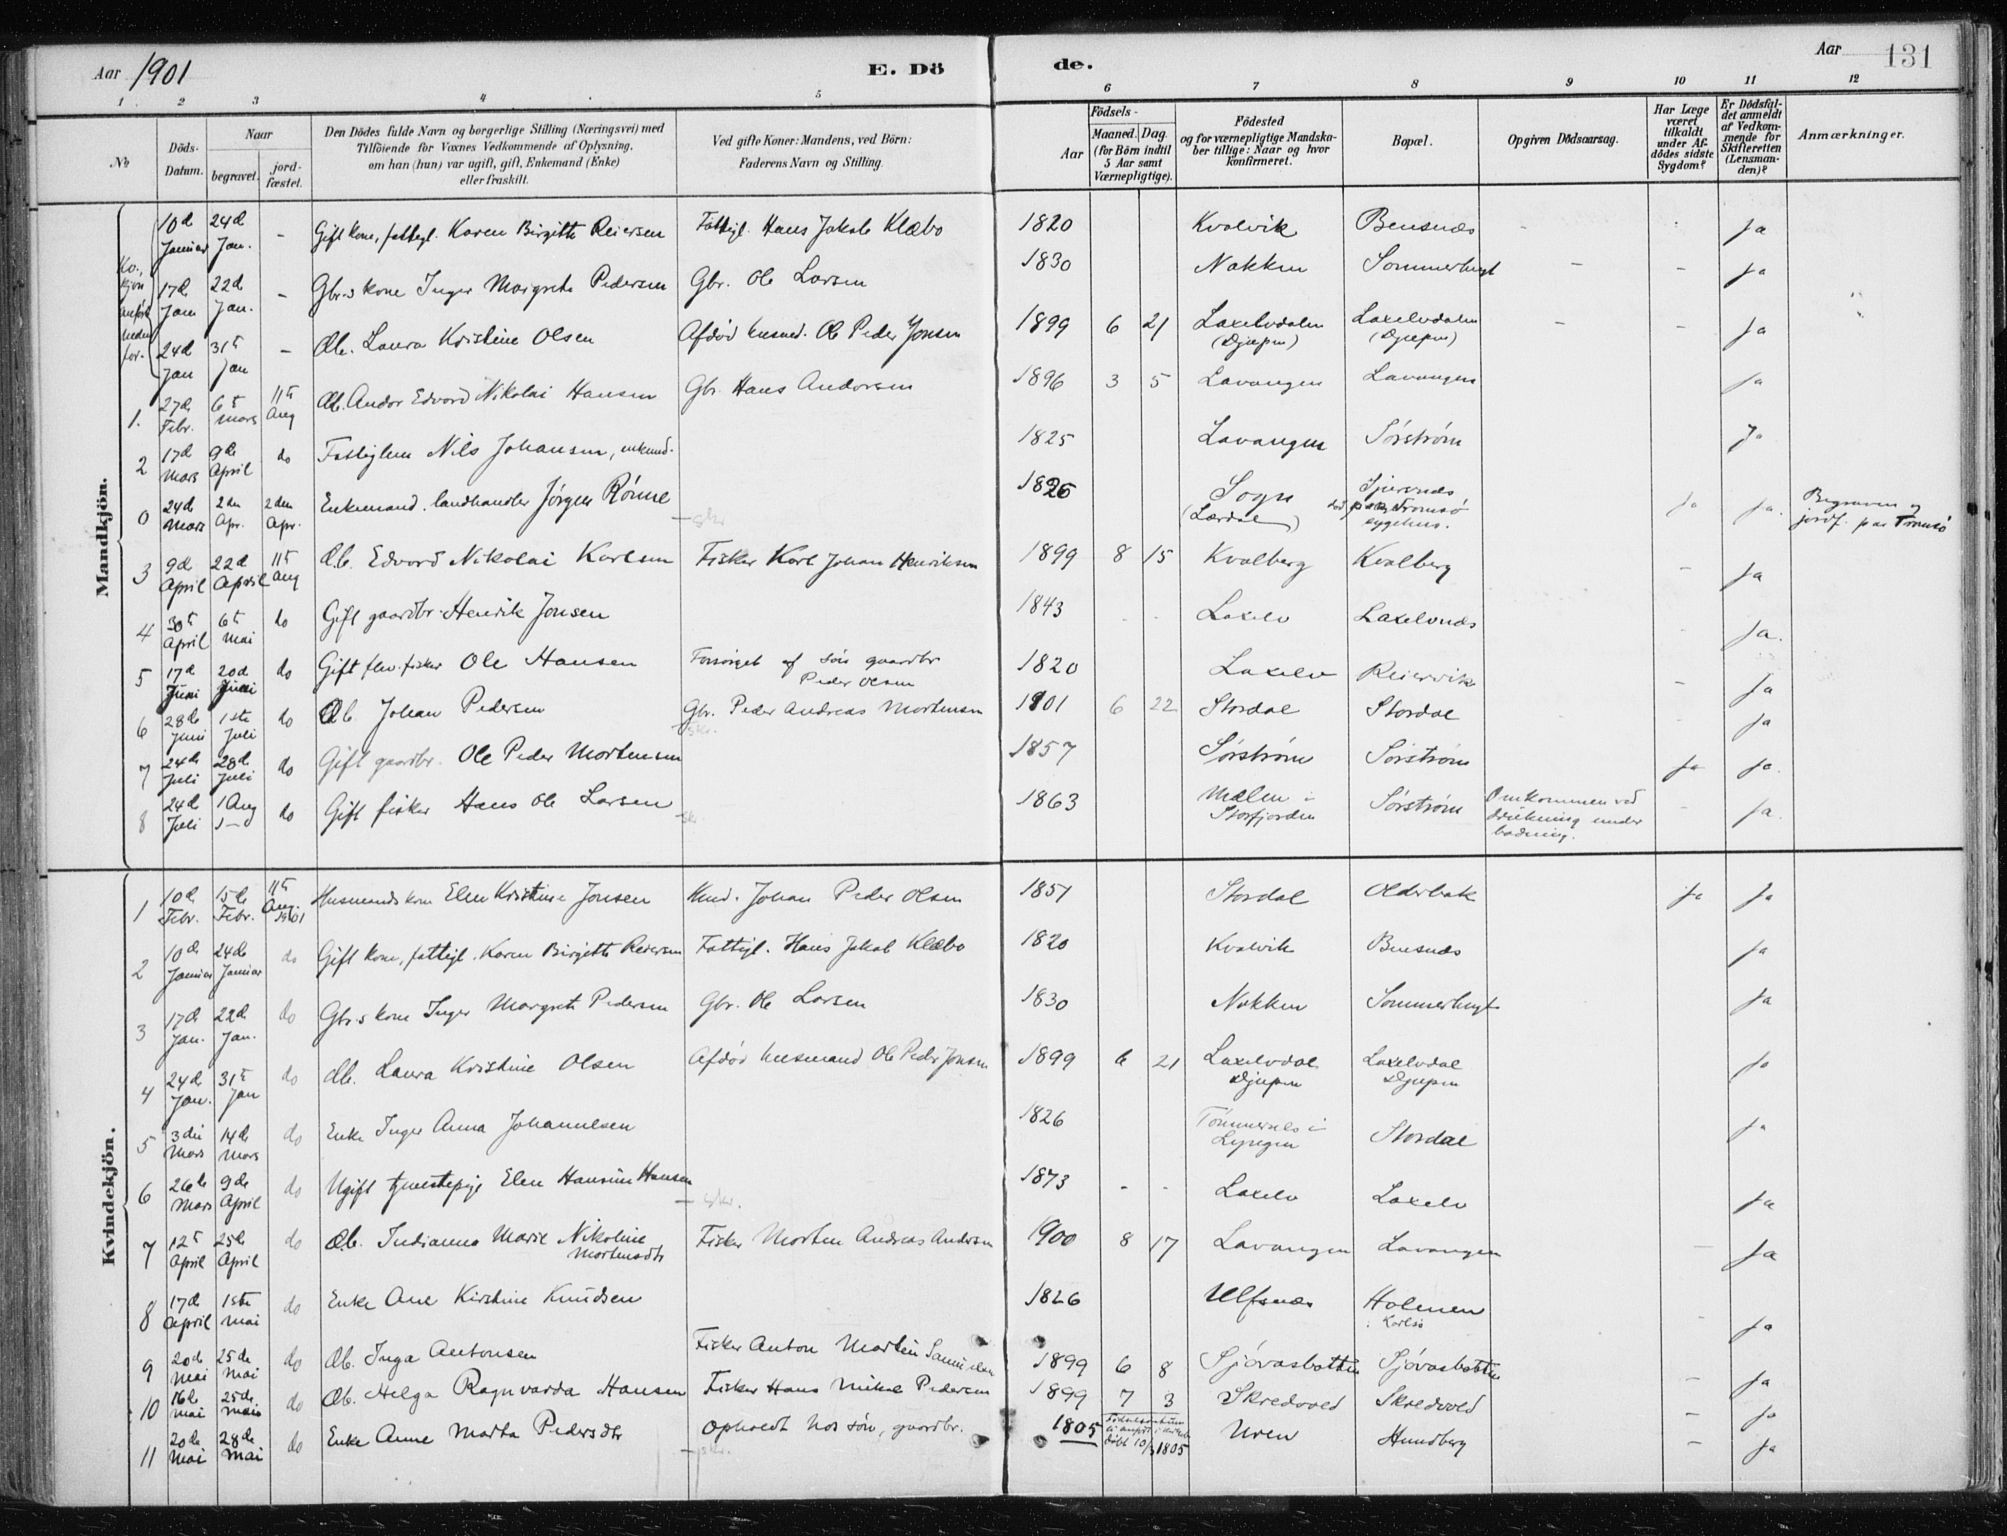 Aar 1901 E. Dö de. Aar 131
1 2 3 4 5 6 7 8 9 10 11 12
No Döds-Datum. Naar begravet. jord-fæstet. Den Dödes fulde Navn og borgerlige Stilling (Næringsvei) med Tilföiende for Voxnes Vedkommende af Oplysning, om han (hun) var ugift, gift, Enkemand (Enke) eller fraskilt. Ved gifte Koner: Mandens, ved Börn: Faderens Navn og Stilling. Aar Födsels- Maaned. Dag. (for Börn indtil 5 Aar samt Værnepligtige). Födested og for værnepligtige Mandska-ber tillige: Naar og hvor konfirmeret. Bopæl. Opgiven Dödsaarsag. Har Læge været tilkaldt under Af-dödes sidste Sygdom? Er Dödsfal-det anmeldt af Vedkom-mende for Skifteretten (Lensman-den)? Anmærkninger.
Mandkjön.
Kv. kjøn anført nedenfor.
10de Januar 24d Jan. - Gift kone, fattigl. Karen Birgitte Reiersen Fattigl. Hans Jakob Klæbo 1820 Kvalvik Bensnæs - ja
17de Jan 22d Jan. - Gbr.s kone Inger Margrete Pedersen Gbr. Ole Larsen 1830 Nakken Sommerbugt - - ja
24d Jan 31t Jan - Æb. Laura Kristine Olsen Afdød husmd. Ole Peder Jonsen 1899 6 21 Laxelvdalen (Djupen) Laxelvdalen (Djupen) - - ja
1. 27de Febr. 6t Mars 11t Aug Æb. Andor Edvard Nikolai Hansen Gbr. Hans Andorsen 1896 3 5 Lavangen Lavangen ja
2 17d Mars 9de April do Fattiglem Nils Johansen, enkemd. 1825 Lavangen Sørstrøm ja
0 24d Mars 2den Apr. 2den Apr. Enkemand, landhandler Jørgen Rønne skr 1826 Sogn (Lærdal) død paa Tromsø sygehus. ja ja. Begraven og jordf. paa Tromsø
3 9d April 22d April 11t Aug Æb. Edvard Nikolai Karlsen Fisker Karl Johan Henriksen 1899 8 15 Kvalberg Kvalberg - ja
4 30t April 6t Mai do Gift gaardbr. Henrik Jonsen 1843 - - Laxelv Laxelvnæs ja.
5 17d Juni 20d Juni do Gift fisker Ole Hansen Forsørget af søn gaardbr Peder Olsen 1820 Laxelv Reiervik - ja
6 28de Juni 1ste Juli do Æb Johan Pedersen Gbr. Peder Andreas Mortensen skr. 1901 6 22 Stordal Stordal ja
7 24de Juli 28de Juli do Gift gaardbr. Ole Peder Mortensen 1857 Sørstrøm Sørstrøm ja ja.
8 24d Juli 1 Aug do Gift fisker Hans Ole Larsen skr 1863 Mælen i Storfjorden Sørstrøm Omkommen ved drukning under badning. - ja.
Kvindekjön.
1 10d Febr. 15de Febr. 11t Aug. 1901 Husmandskone Elen Kristine Jonsen Hmd. Johan Peder Olsen 1851 Stordal Olderbak ja ja
2 10de Januar 24de Januar do Gift kone, fattigl. Karen Birgitte Reiersen Fattigl. Hans Jakob Klæbo 1820 Kvalvik Bensnæs ja
3 17d Jan. 22d Jan. do Gbr.s kone Inger Margrete Pedersen Gbr. Ole Larsen 1830 Nakken Sommerbugt ja
4 24d Jan. 31t Jan do Æb. Laura Kristine Olsen Afdød husmand Ole Peder Jonsen 1899 6 21 Laxelvdal Djupen Laxelvdal Djupen ja
5 3die Mars 14de Mars do Enke Inger Anna Johannesen 1826 Tømmernes i Lyngen Stordal ja
6 26de Mars 9de April do Ugift tjenestepige Elen Hansine Hansen skr. 1873 - - Laxelv Laxelv ja
7 12t April 25de April do Æb. Indianna Marie Nikoline Mortensdtr Fisker Morten Andreas Andersen 1900 8 17 Lavangen Lavangen - ja
8 17de April 1ste Mai do Enke Ane Kirstine Knudsen 1826 Ulfsnæs Holmen i Karlsø - ja
9 20de Mai 25de Mai do Æb. Inga Antonsen Fisker Anton Martin 1899 6 8 Sjøvasbotten Sjøvasbotten - ja
10 16de Mai 25de Mai do Æb. Helga Ragnvarda Hansen Fisker Hans Mikal Pedersen 1899 7 3 Skredoved Skredoved - ja
11 20de Mai 28de Mai do Enke Anne Marta Pedersdtr Opholdt hos søn, gaardbr. skr. 1805 døbt 10/3 1805 Uren Hundberg - ja